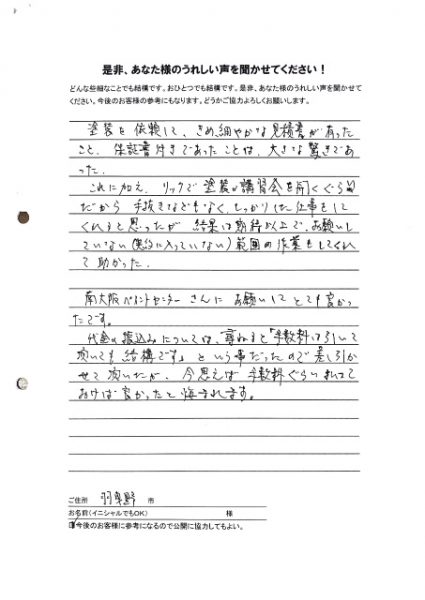 是非、あなた様のうれしい声を聞かせてください！
どんな些細なことでも結構です。おひとつでも結構です。是非、あなた様のうれしい声を聞かせて
ください。今後のお客様の参考にもなります。どうかご協力よろしくお願いします。
塗装を依頼して、きめ細やかな見積書が有った
こと、保証書付きであったことは、大きな驚きであ
った。
これに加え、リックで塗装の講習会を開くぐらい
だから手抜きなどもなく、しっかりした仕事をして
くれると思ったが 結果は期待以上で、お願いし
ていない(契約に入っていない)範囲の作業もしてくれ
て助かった。
南大阪ペイントセンターさんにお願いしてとても良かっ
たです。
代金の振込みについては、尋ねると「手数料は引いて
頂いても結構です」という事だったので差し引か
せて頂いたが、今思えば手数料ぐらい払って
おけば良かったと悔まれます。
ご住所 羽曳野 市
お名前(イニシャルでもOK) 様
今後のお客様に参考になるので公開に協力してもよい。